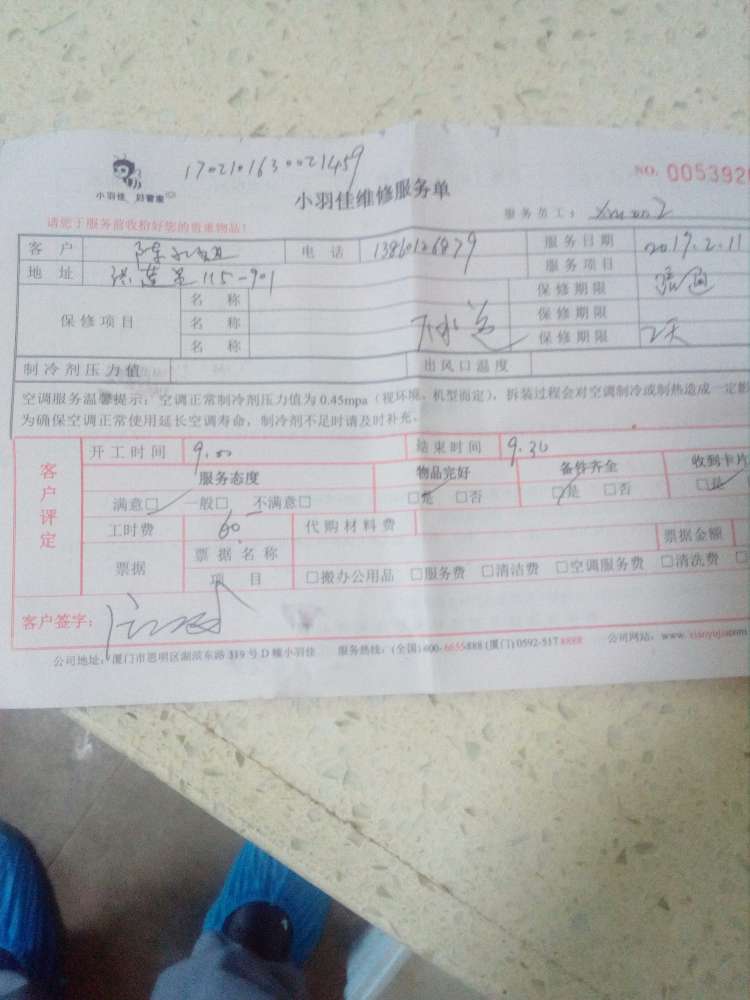 170210163002​1459
小羽佳 好管家
小羽佳维修服务单
NO. 0053920
请您于服务前收拾好您的贵重物品!
服务员工:
客 户 陈 电 话 13860126879 服务日期 2019.2.11
地 址 115-901 服务项目
保修项目 名 称 保修期限 疏通
名 称 下水道 保修期限
名 称 保修期限 2天
制冷剂压力值 出风口温度
空调服务温馨提示:空调正常制冷剂压力值为 0.45mpa(视环境、机型而定),拆装过程会对空调制冷或制热造成一定
为确保空调正常使用延长空调寿命,制冷剂不足时请及时补充。
客户评定
开工时间 9.00 结束时间 9.30
服务态度 物品完好 备件齐全 收到卡片
满意□ 一般□ 不满意□ □是 □否 □是 □否 □是
工时费 60 代购材料费
票据 票据名称 票据金额
项 目 □搬办公用品 □服务费 □清洁费 □空调服务费 □清洗费
客户签字:
公司地址:厦门市思明区湖滨东路 319 号 D 幢小羽佳 服务热线:(全国)400-6655888 (厦门) 0592-5178888 公司网站:www.xiaoyujia.com